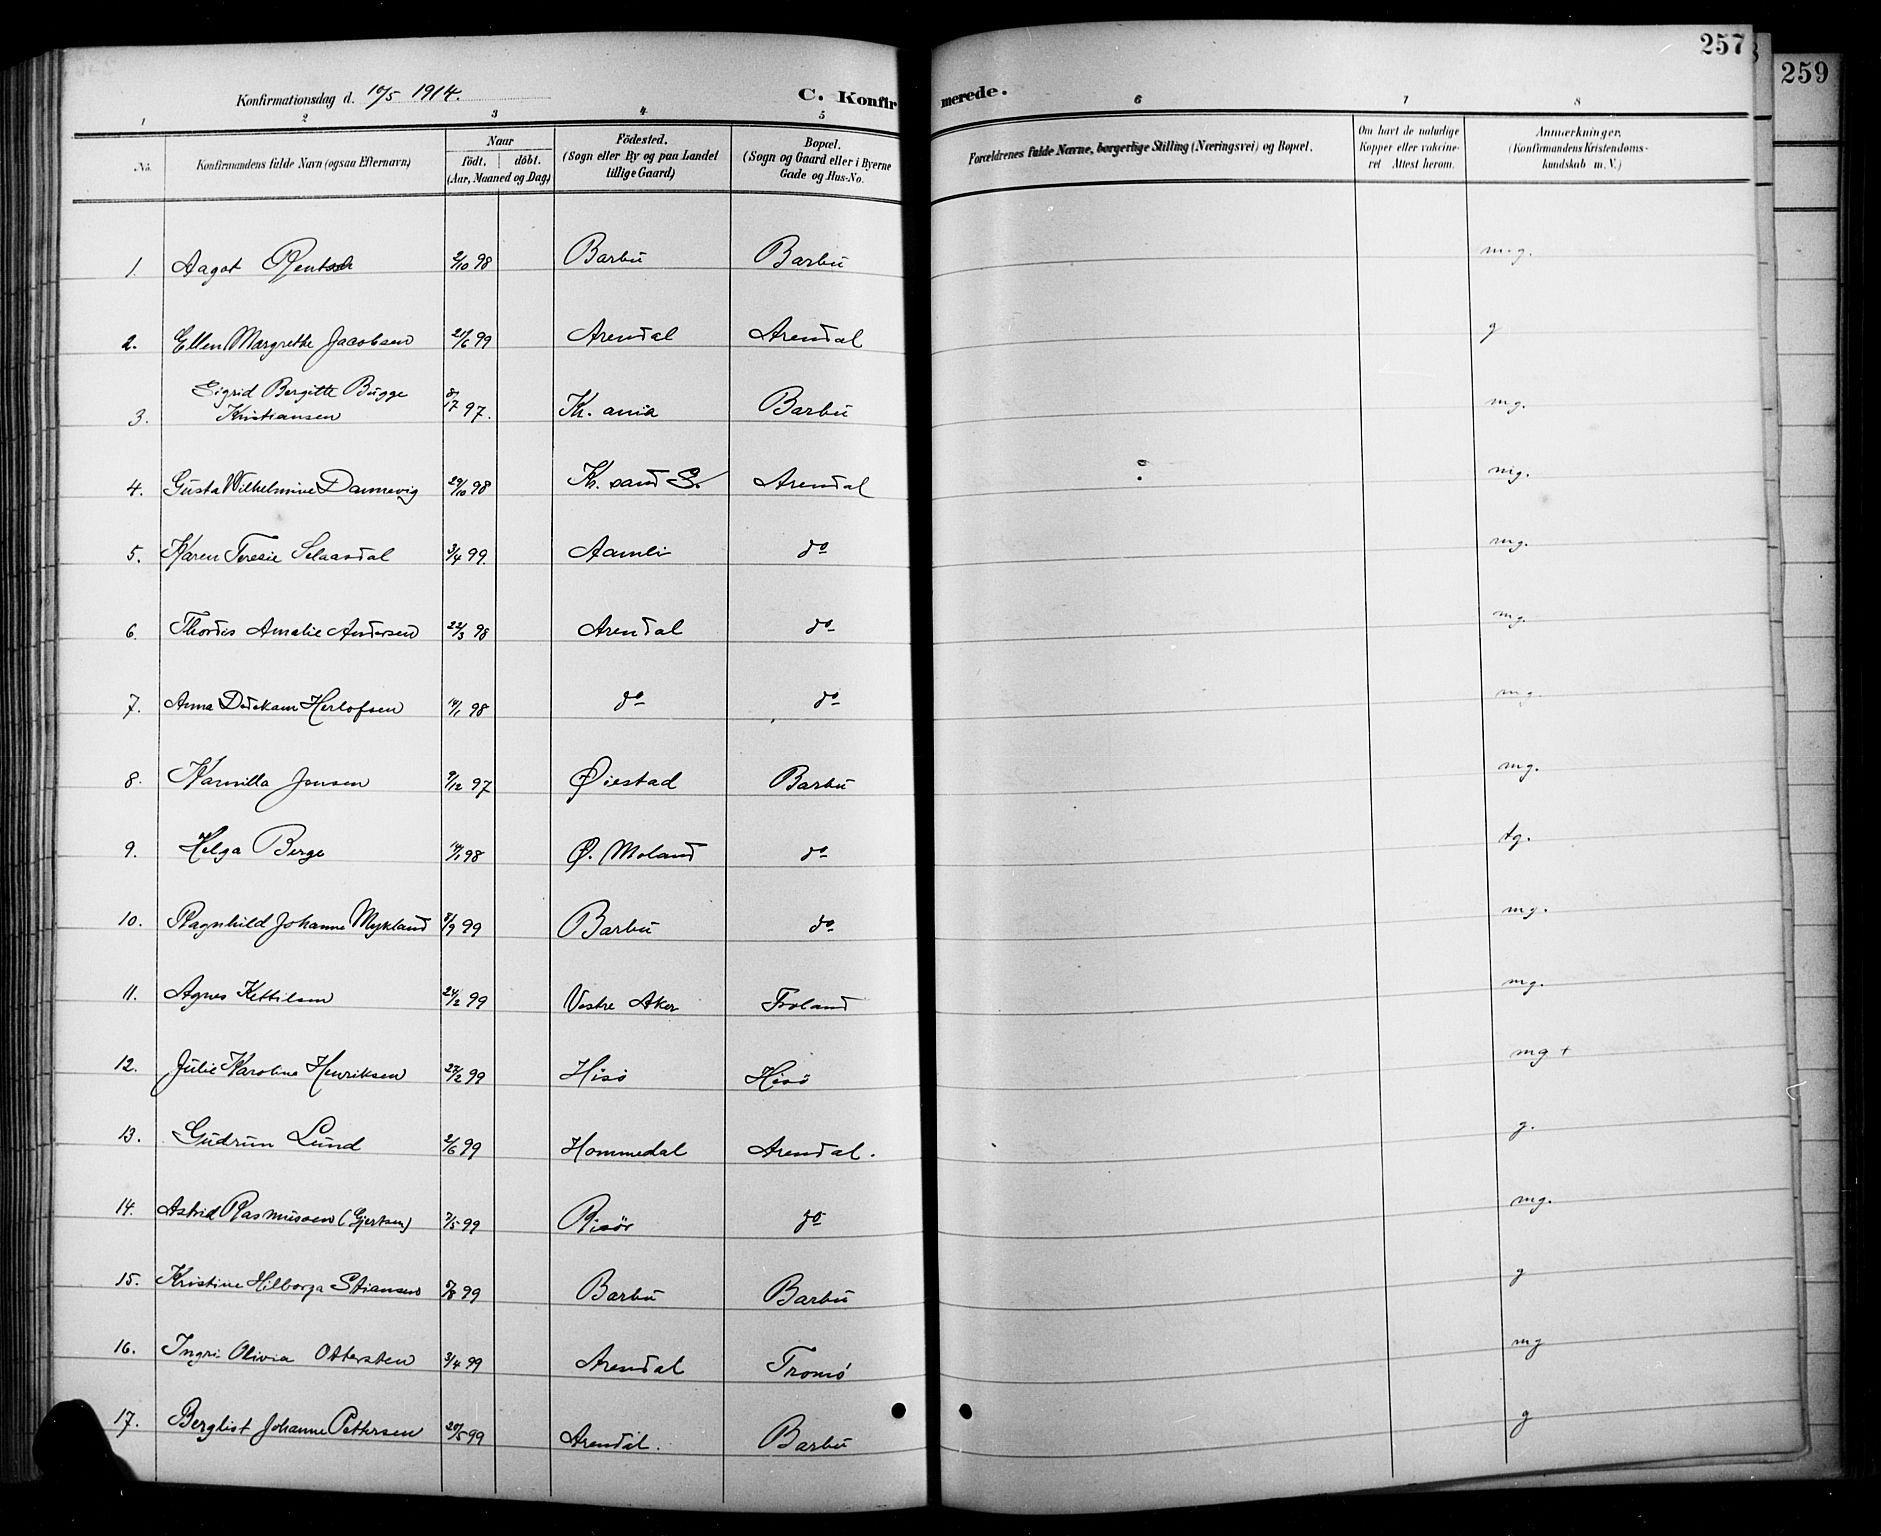 257
259
Konfirmationsdag d. 10/5 1914.
C. Konfirmerede.
1 2 3 4 5 6 7 8
No. Konfirmandens fulde Navn (ogsaa Efternavn) Naar født. døbt. (Aar, Maaned og Dag) Fødested. (Sogn eller By og paa Landet tillige Gaard) Bopæl. (Sogn og Gaard eller i Byerne Gade og Hus-No. Forældrenes fulde Navne, borgerlige Stilling (Næringsvei) og Bopæl. Om havt de naturlige Kopper eller vakcineret Attest herom. Anmærkninger. (Konfirmandens Kristendomskundskab m. V.)
1. Aagot 2/10 98 Barbu Barbu m.g.
2. Ellen Margrethe Jacobsen 21/6 99 Arendal Arendal g
3. Sigrid Bergitte Bugge Kristiansen 97. Kr. ania Barbu mg.
4. Gusta Wilhelmine Dannevig 29/10 98 Kr. sand S. Arendal mg.
5. Karen Teresie Selaasdal 3/4 99. Aamli do mg.
6. Thordis Amalie Andersen 22/3 98 Arendal do mg.
7. Anna Dedekam Herlofsen 14/1 98 do do mg.
8. Kamilla Jensen 9/12 97 Øiestad Barbu mg.
9. Helga Berge 14/1 98 Ø. Moland do tg.
10. Ragnhild Johanne Mykland 8/9 99 Barbu do mg.
11. Agnes Kettilsen 24/2 99 Vestre Aker Froland mg.
12. Julie Karoline Henriksen 27/2 99 Hisö Hisö mg +
13. Gudrun Lund 2/6 99 Hommedal Arendal. g.
14. Astrid Rasmussen (Gjertsen) 7/5 99 Risör do mg.
15. Kristine Hilborga Stiansen 5/8 99 Barbu Barbu g
16. Ingri Olivia Ottersten 3/4 99 Arendal Tromö mg
17. Bergliot Johanne Pettersen 20/5 99 Arendal. Barbu g